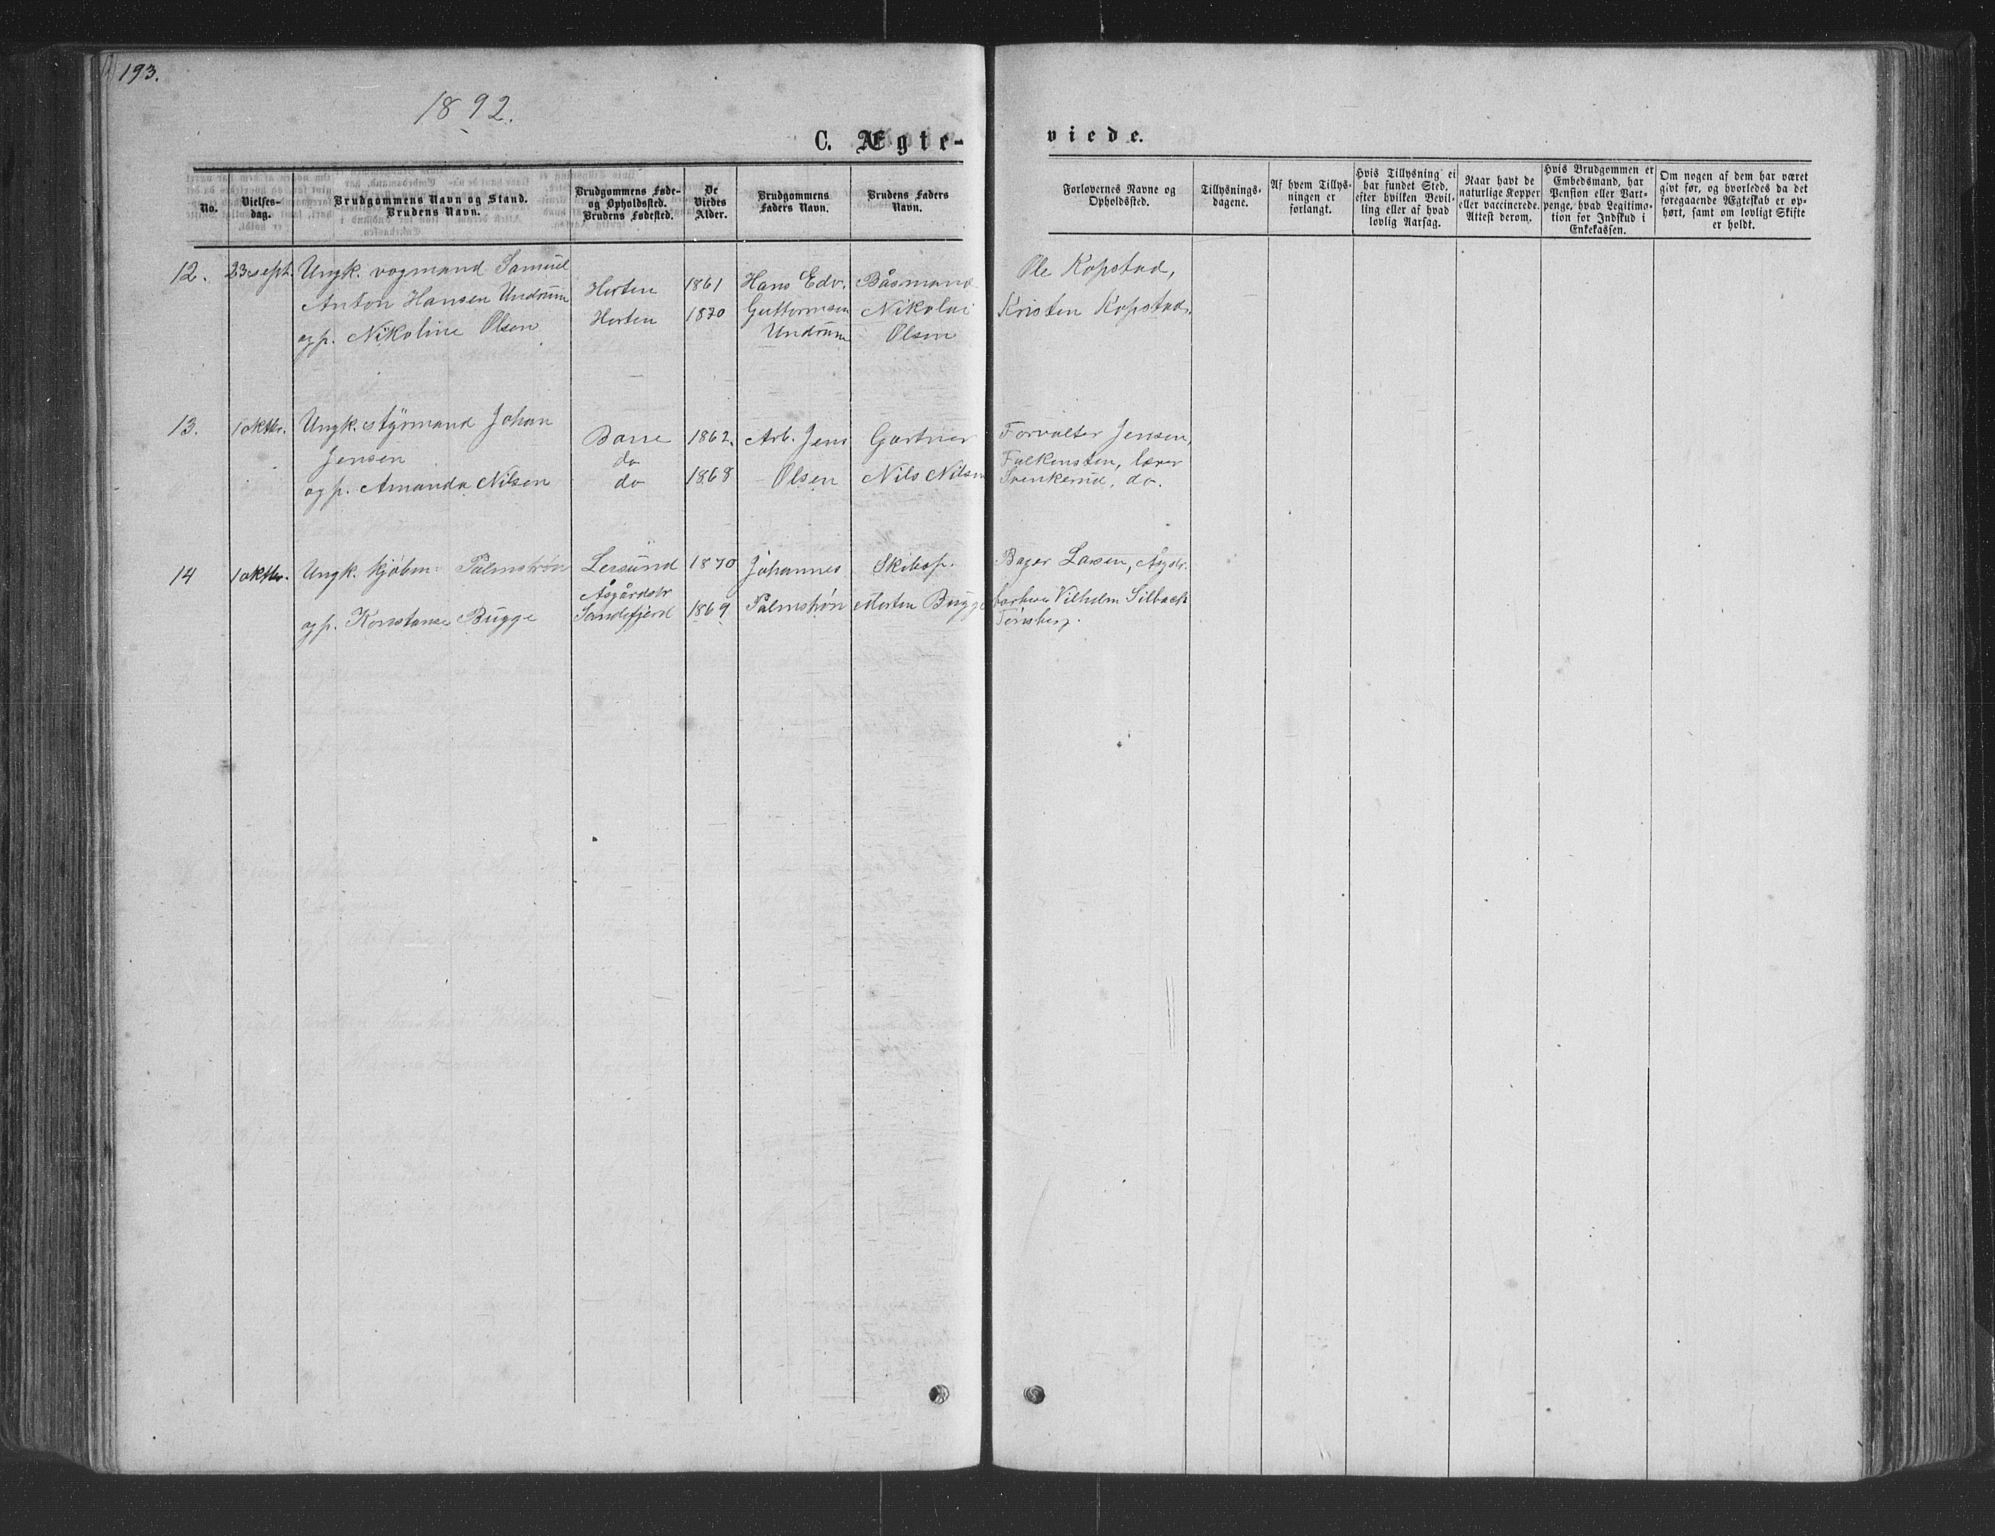 193.
1892.
C. Ægte-
viede.
No.
Vielses-
dag.
Brudgommens Navn og Stand.
Brudens Navn.
Brudgommens Føde-
og Opholdssted.
Brudens Fødested.
De
Viedes
Alder.
Brudgommens
Faders Navn.
Brudens Faders
Navn.
Forlovernes Navne og
Opholdssted.
Tillysnings-
dagene.
Af hvem Tillys-
ningen er
forlangt.
Hvis Tillysning ei
har fundet Sted,
efter hvilken Bevil-
ling eller af hvad
lovlig Aarsag.
Naar havt de
naturlige Kopper
eller vaccinerede.
Attest derom.
Hvis Brudgommen er
Embedsmand, har
Pension eller Vart-
penge, hvad Legitima-
tion for Indskud i
Enkekassen.
Om nogen af dem har været
givt før, og hvorledes da det
foregaaende Ægteskab er op-
hørt, samt om lovligt Skifte
er holdt.
12.
23 sept.
Ungk. vogmand Samuel
Anton Hansen Undrum
og p. Nikoline Olsen
Horten
Horten
1861
1870
Hans Edv.
Guttormsen
Undrum
Båsmand
Nikolai
Olsen
Ole Kopstad,
Kristen Kopstad
13.
1 oktbr.
Ungk. styrmand Johan
Jensen
og p. Amanda Nilsen
Borre
do
do
1862.
1868
Arb. Jens
Olsen
Gartner
Nils Nilsen
Forvalter Jensen,
Falkensten, lærer
Svenkerud, do.
14
1 oktbr.
Ungk. kjøbm. Palmstrøn
og p. Konstanse Bugge
Åsgårdstr
Sandefjord
1870
1869
Johannes
Palmstrøn
Skibsp.
Morten Bugge
Bager Larsen, Asgdr.
Vilhelm Silbach
Tønsberg.